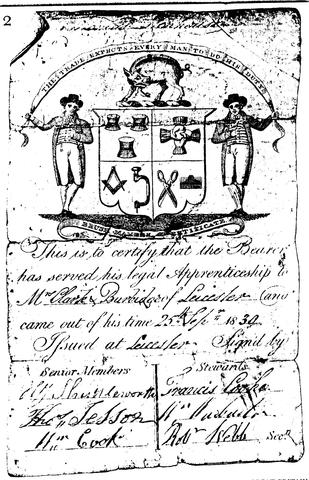 2
THE TRADE EXPECTS EVERY MAN TO DO HIS DUTY
BRUSH MAKERS CERTIFICATE
This is to certify that the Bearer
has served his legal Apprenticeship to
Mr Clark & Burbidge of Leicester (and
came out of his time 25th Sepr 1839
Issued at Leicester Sign'd by
Senior Members
Stewards
Shuttleworth
Francis Cooke
Thos Sesson
Wm
Wm Cook
Robt Webb Secy